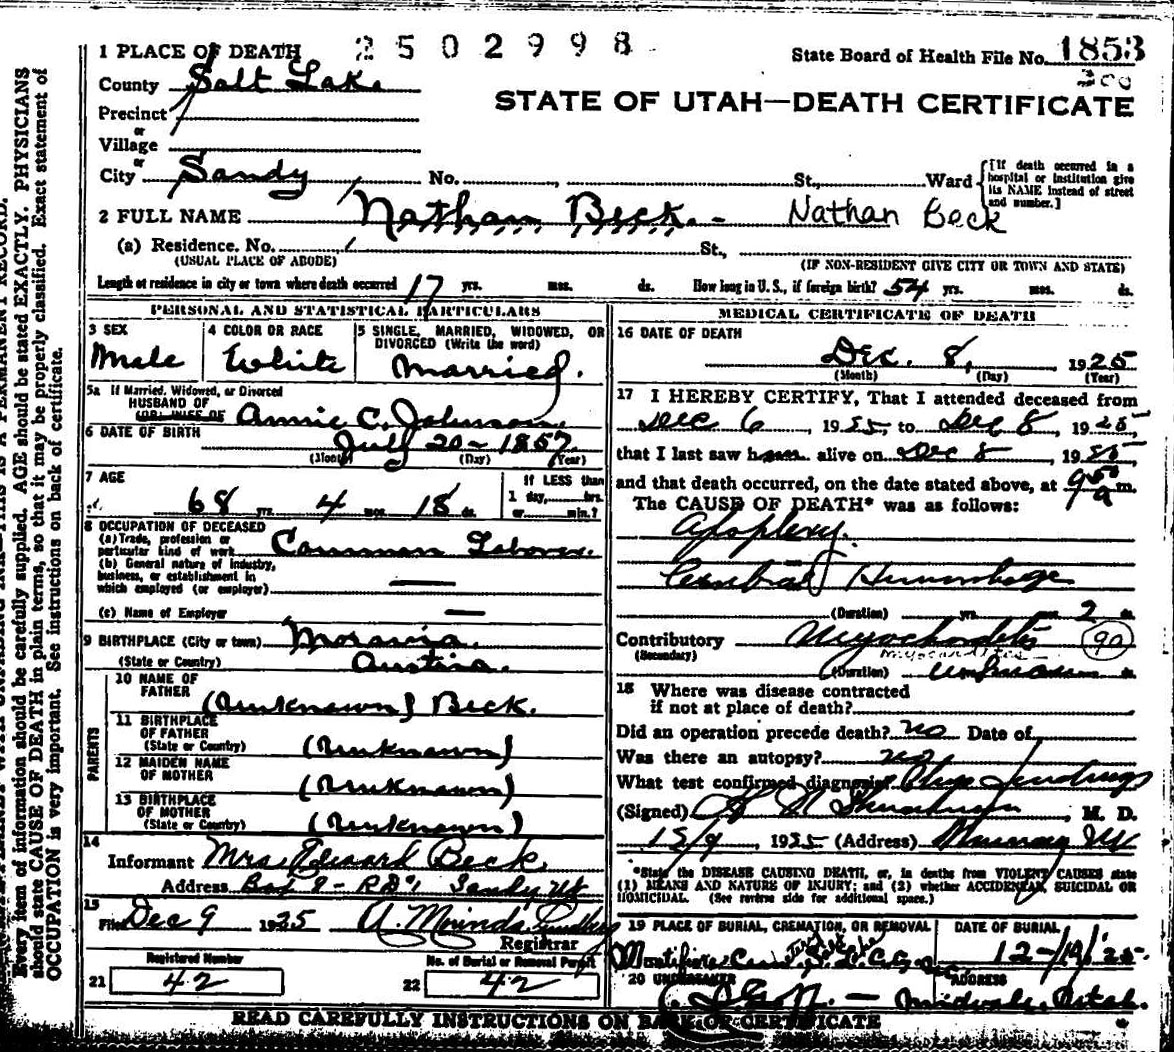 2502998
State Board of Health File No. 1853
300
1 PLACE OF DEATH
County Salt Lake
STATE OF UTAH—DEATH CERTIFICATE
Precinct
or
Village
or
City Sandy No. St., Ward
[If death occurred in a hospital or institution give its NAME instead of street and number.]
2 FULL NAME Nathan Beck. - Nathan Beck
(a) Residence. No. St.,
(USUAL PLACE OF ABODE) (IF NON-RESIDENT GIVE CITY OR TOWN AND STATE)
Length of residence in city or town where death occurred 17 yrs. mos. ds. How long in U. S., if foreign birth? 54 yrs. mos. ds.
PERSONAL AND STATISTICAL PARTICULARS
3 SEX
Male
4 COLOR OR RACE
White
5 SINGLE, MARRIED, WIDOWED, OR
DIVORCED (Write the word)
Married.
5a If Married, Widowed, or Divorced
HUSBAND OF
(OR) WIFE OF Annie C. Johnson
6 DATE OF BIRTH July 20 - 1857
(Month) (Day) (Year)
7 AGE
68 yrs. 4 mos. 18 ds.
If LESS than
1 day, hrs.
or min.?
8 OCCUPATION OF DECEASED
(a) Trade, profession or
particular kind of work Common Laborer.
(b) General nature of industry,
business, or establishment in
which employed (or employer) —
(c) Name of Employer —
9 BIRTHPLACE (City or town) Moravia.
(State or Country) Austria.
PARENTS
10 NAME OF
FATHER (Unknown) Beck.
11 BIRTHPLACE
OF FATHER
(State or Country) (Unknown)
12 MAIDEN NAME
OF MOTHER (Unknown)
13 BIRTHPLACE
OF MOTHER
(State or Country) (Unknown)
14
Informant Mrs. Edward Beck.
Address Box 8 - RD#1 Sandy Ut
15
Filed Dec 9 1925 A. Mounds
Registrar
Registered Number
21 42
No. of Burial or Removal Permit
22 42
MEDICAL CERTIFICATE OF DEATH
16 DATE OF DEATH
Dec. 8, 1925
(Month) (Day) (Year)
17 I HEREBY CERTIFY, That I attended deceased from
Dec 6, 1925, to Dec 8, 1925,
that I last saw him alive on Dec 8, 1925,
and that death occurred, on the date stated above, at 9 50 a m.
The CAUSE OF DEATH* was as follows:
Apoplexy.
Cerebral Hemorrhage
(Duration) yrs. mos. 2 ds.
Contributory Myochordetis 90
(Secondary) myocarditis
(Duration) unknown ds.
18 Where was disease contracted
if not at place of death?
Did an operation precede death? no Date of
Was there an autopsy? no
What test confirmed diagnosis? Phys findings
(Signed) M. D.
12/9, 1925 (Address) Murray Ut
*State the DISEASE CAUSING DEATH, or, in deaths from VIOLENT CAUSES state
(1) MEANS AND NATURE OF INJURY; and (2) whether ACCIDENTAL, SUICIDAL OR
HOMICIDAL. (See reverse side for additional space.)
19 PLACE OF BURIAL, CREMATION, OR REMOVAL
Montifiore Cem S. L. C.
DATE OF BURIAL
12-10-'25-
20 UNDERTAKER
ADDRESS
Midvale, Utah.
READ CAREFULLY INSTRUCTIONS ON BACK OF CERTIFICATE
Every item of information should be carefully supplied. AGE should be stated EXACTLY. PHYSICIANS
should state CAUSE OF DEATH in plain terms, so that it may be properly classified. Exact statement of
OCCUPATION is very important. See instructions on back of certificate.